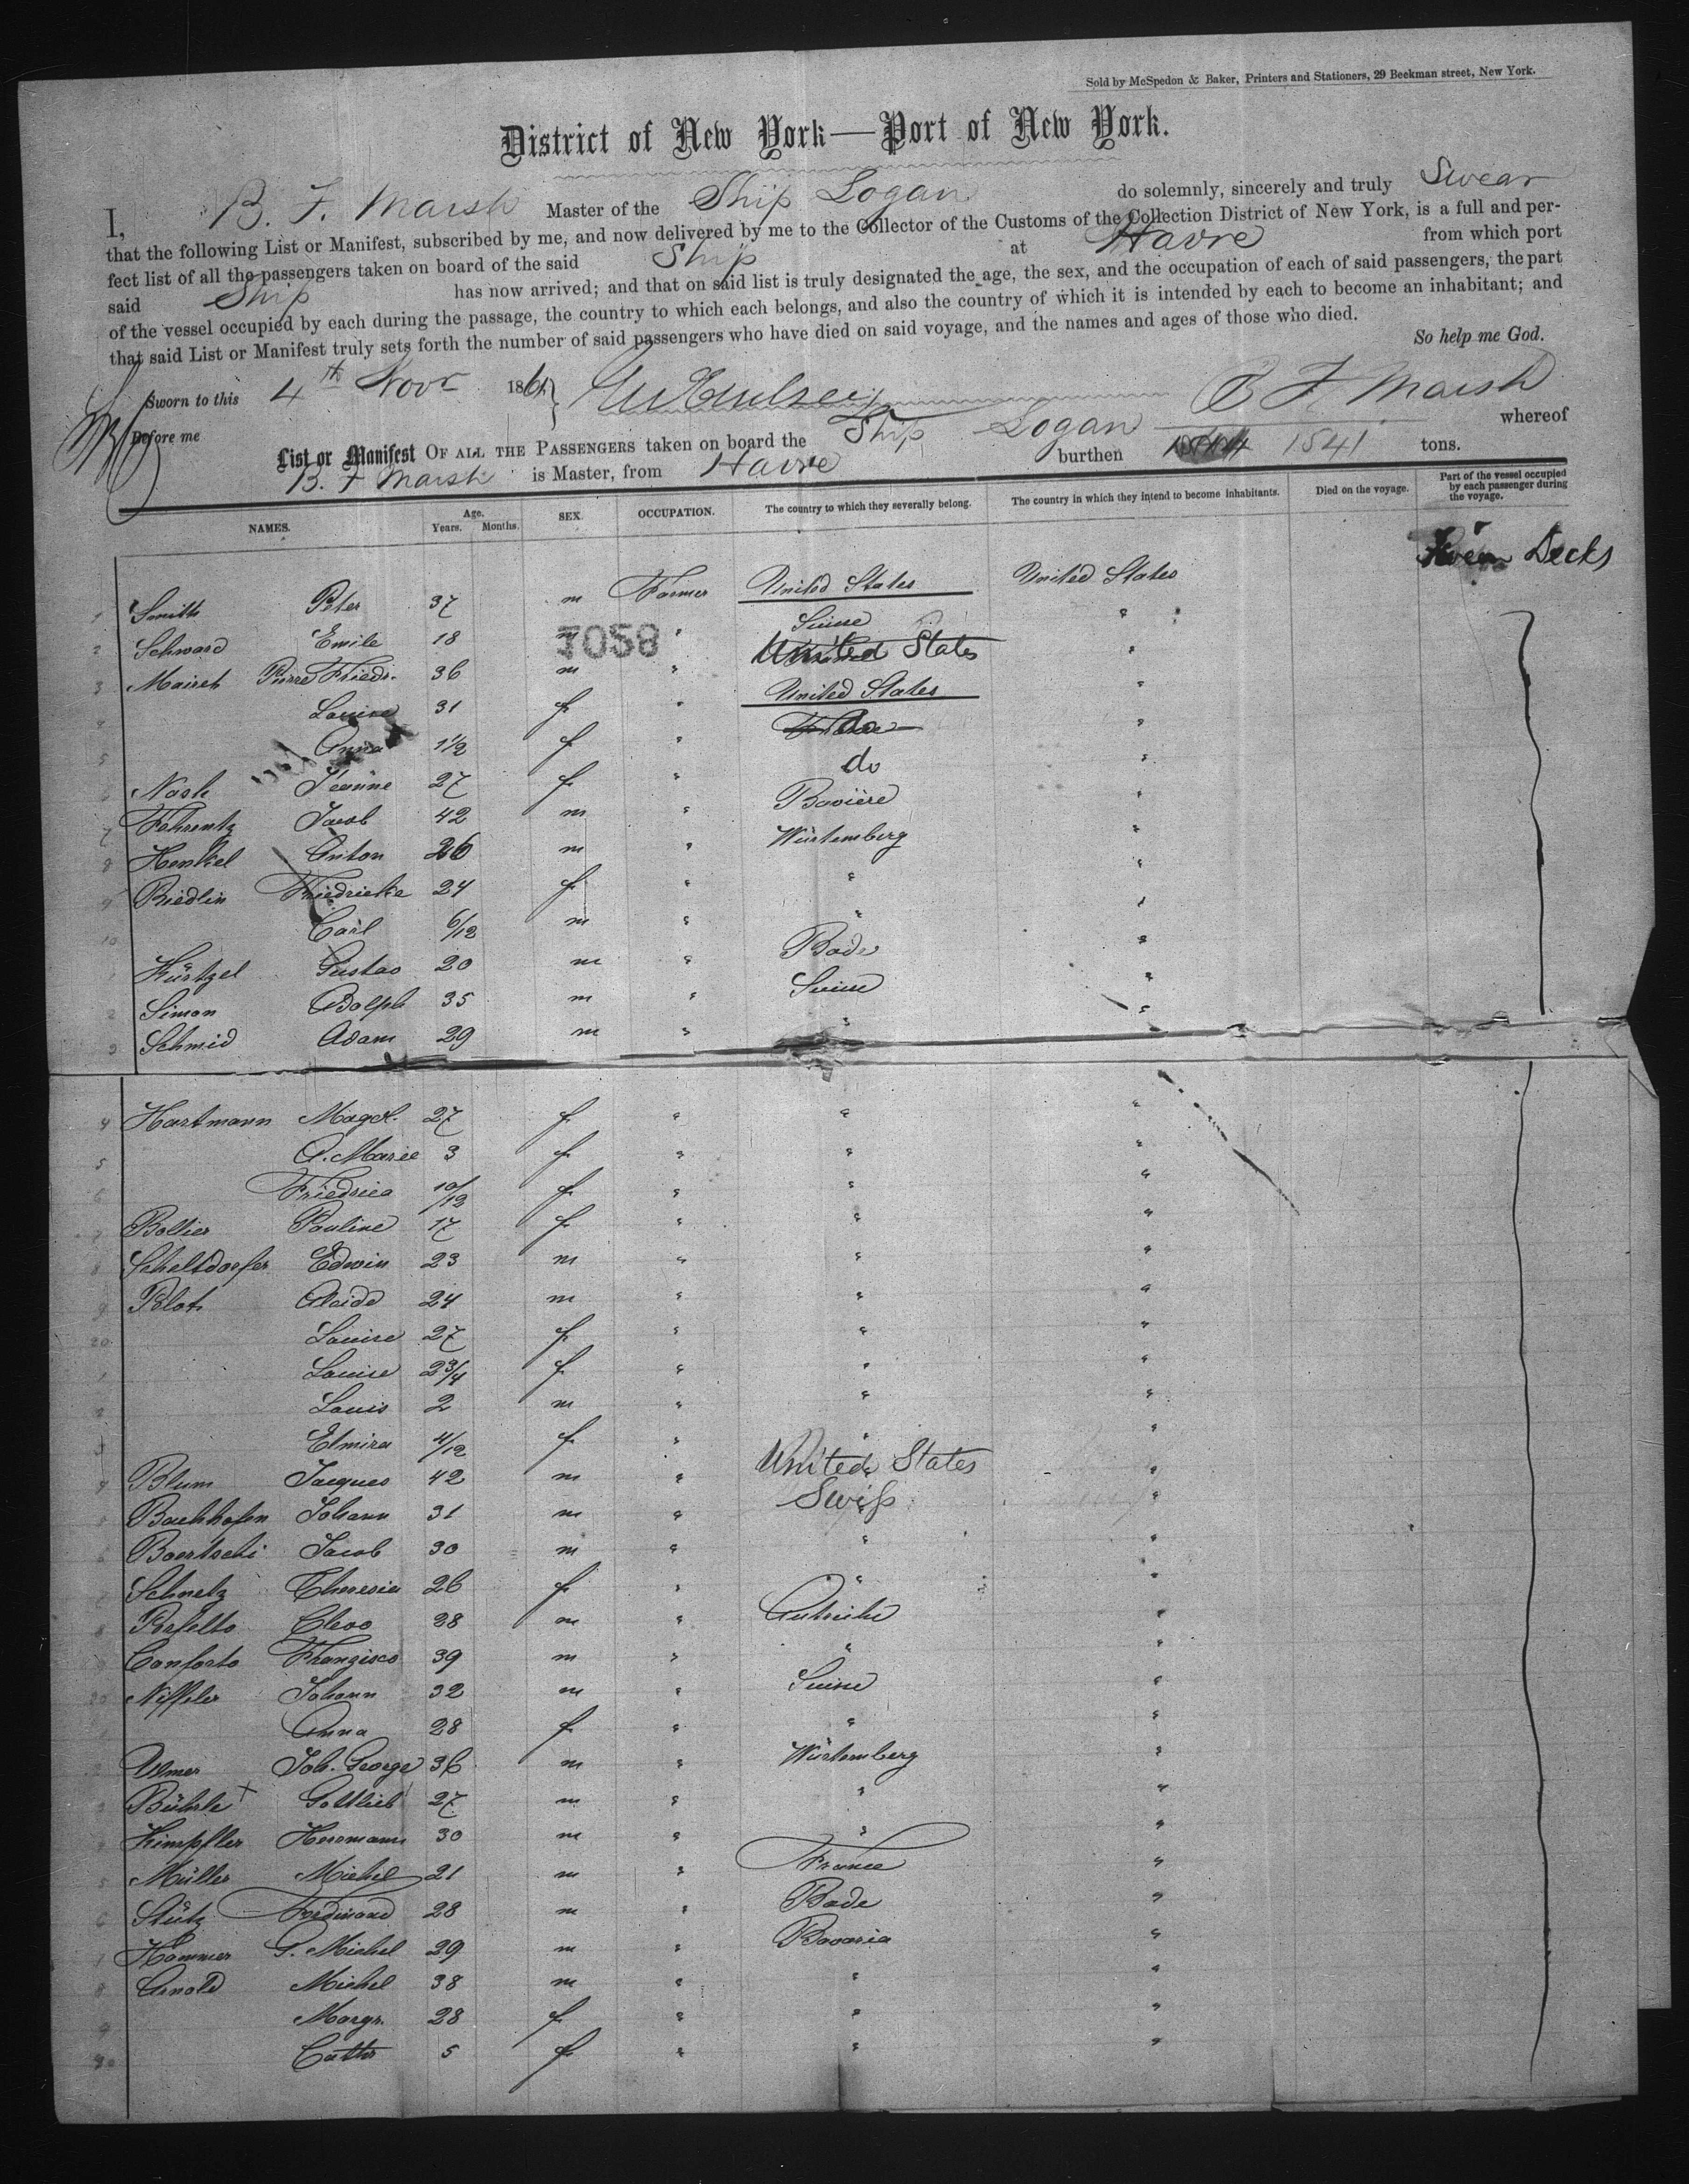 Sold by McSpedon & Baker, Printers and Stationers, 29 Beekman street, New York.
District of New York—Port of New York.
I, B. F. Marsh Master of the Ship Logan do solemnly, sincerely and truly Swear
that the following List or Manifest, subscribed by me, and now delivered by me to the Collector of the Customs of the Collection District of New York, is a full and per-
fect list of all the passengers taken on board of the said Ship at Havre from which port
said Ship has now arrived; and that on said list is truly designated the age, the sex, and the occupation of each of said passengers, the part
of the vessel occupied by each during the passage, the country to which each belongs, and also the country of which it is intended by each to become an inhabitant; and
that said List or Manifest truly sets forth the number of said passengers who have died on said voyage, and the names and ages of those who died.
So help me God.
Sworn to this 4th Novr 1861. B F Marsh
Before me
List or Manifest OF ALL THE PASSENGERS taken on board the Ship Logan whereof
B. F Marsh is Master, from Havre burthen 1541 tons.
NAMES. Age. Years. Months. SEX. OCCUPATION. The country to which they severally belong. The country in which they intend to become inhabitants. Died on the voyage. Part of the vessel occupied by each passenger during the voyage.
Decks
1 Smith Peter 37 m Farmer United States United States
7058
2 Schward Emile 18 m " Suisse "
3 Maireh Pierre Friedr. 36 m " United States "
4 Louise 31 f " United States "
5 Anna 1 1/2 f " do "
6 Nash Jeanne 27 f " do "
7 Fahrentz Jacob 42 m " Bavière "
8 Henkel Anton 26 m " Würtemberg "
9 Riedlin Friedricke 24 f " " "
10 Carl 6/12 m " " "
1 Kürtzel Gustav 20 m " Bade "
2 Simon Adolph 35 m " Suisse "
3 Schmid Adam 29 m " " "
4 Hartmann Magd. 27 f " " "
5 A. Marie 3 f " " "
6 Friedrica 10/12 f " " "
7 Bollier Pauline 17 f " " "
8 Scheltdorfer Edwin 23 m " " "
9 Blot Alcide 24 m " " "
20 Louise 27 f " " "
1 Louise 2 3/4 f " " "
2 Louis 2 m " " "
3 Elmira 4/12 f " " "
4 Blum Jacques 42 m " United States "
5 Bachhofen Johann 31 m " Swiss "
6 Baertschi Jacob 30 m " " "
7 Schnetz Theresia 26 f " " "
8 Perfelto Cleoo 28 m " Autriche "
9 Conforto Franzisco 39 m " " "
30 Niffeler Johann 32 m " Suisse "
1 Anna 28 f " " "
2 Ulmer Joh. George 36 m " Würtemberg "
3 Bührle x Gottlieb 27 m " " "
4 Kimpfler Hermann 30 m " " "
5 Müller Michel 21 m " France "
6 Stütz Ferdinand 28 m " Bade "
7 Hammer G. Michel 29 m " Bavaria "
8 Arnold Michel 38 m " " "
9 Margr. 28 f " " "
40 Cathr 5 f " " "